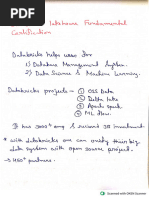 Lakehouse Fundamental
Certification
Databricks helps uses for
1) Database Management System.
2) Data Science & Machine Learning.
Databricks projects - ① OSS Data
② Delta lake
③ Apache Spark
④ ML flow.
* It has 3000+ emp & raised 3B investment.
* with databricks one can unify their big
data system with open source project.
→ 450+ partners.
Scanned with OKEN Scanner